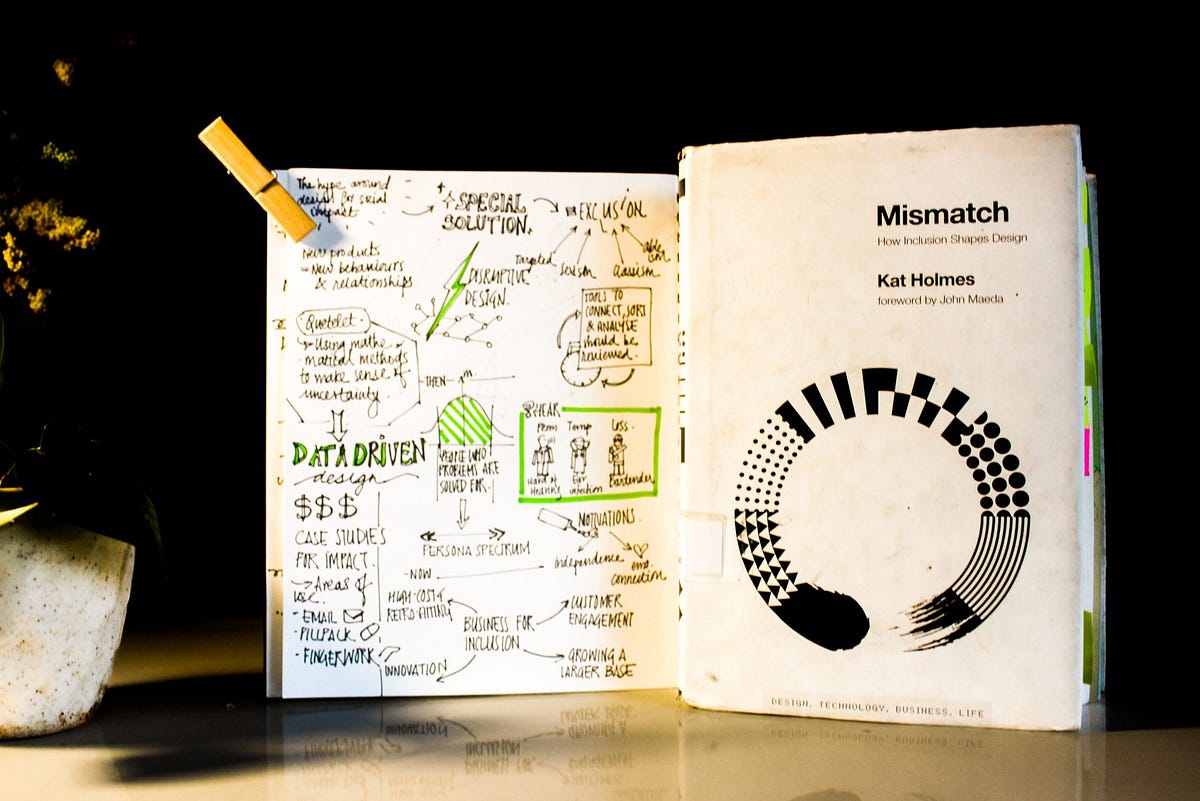 The hype around
design for social
impact
SPECIAL
SOLUTION.
EXCLUSION
Targeted
sexism
classism
ableism
New products
= New behaviours
& relationships
DISRUPTIVE
DESIGN.
TOOLS TO
CONNECT, SORT
& ANALYSE
should be
reviewed.
Quetelet.
→ Using mathe-
matical methods
to make sense of
uncertainty.
THEN
m.
DATA DRIVEN
design
PEOPLE WHO
PROBLEMS ARE
SOLVED FOR.
HEAR
Perm
Temp
Hard of
Hearing
Ear
infection
Bartender
$$$
CASE STUDIES
FOR IMPACT.
→ Areas of
use.
- EMAIL
- PILLPACK
- FINGERWORK
PERSONA SPECTRUM
MOTIVATIONS.
independence
emo.
connection
-NOW
HIGH-COST &
RETRO-FITTING
BUSINESS FOR
INCLUSION
CUSTOMER
ENGAGEMENT
GROWING A
LARGER BASE
INNOVATION
Mismatch
How Inclusion Shapes Design
Kat Holmes
foreword by John Maeda
DESIGN, TECHNOLOGY, BUSINESS, LIFE